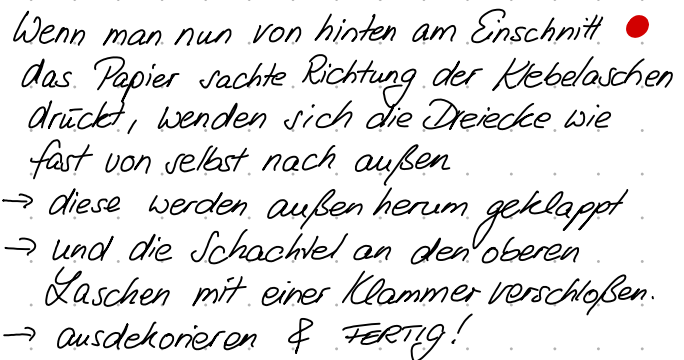 Wenn man nun von hinten am Einschnitt
das Papier sachte Richtung der Klebelaschen
drückt, wenden sich die Dreiecke wie
fast von selbst nach außen
→ diese werden außen herum geklappt
→ und die Schachtel an den oberen
Laschen mit einer Klammer verschloßen.
→ ausdekorieren & FERTIG!